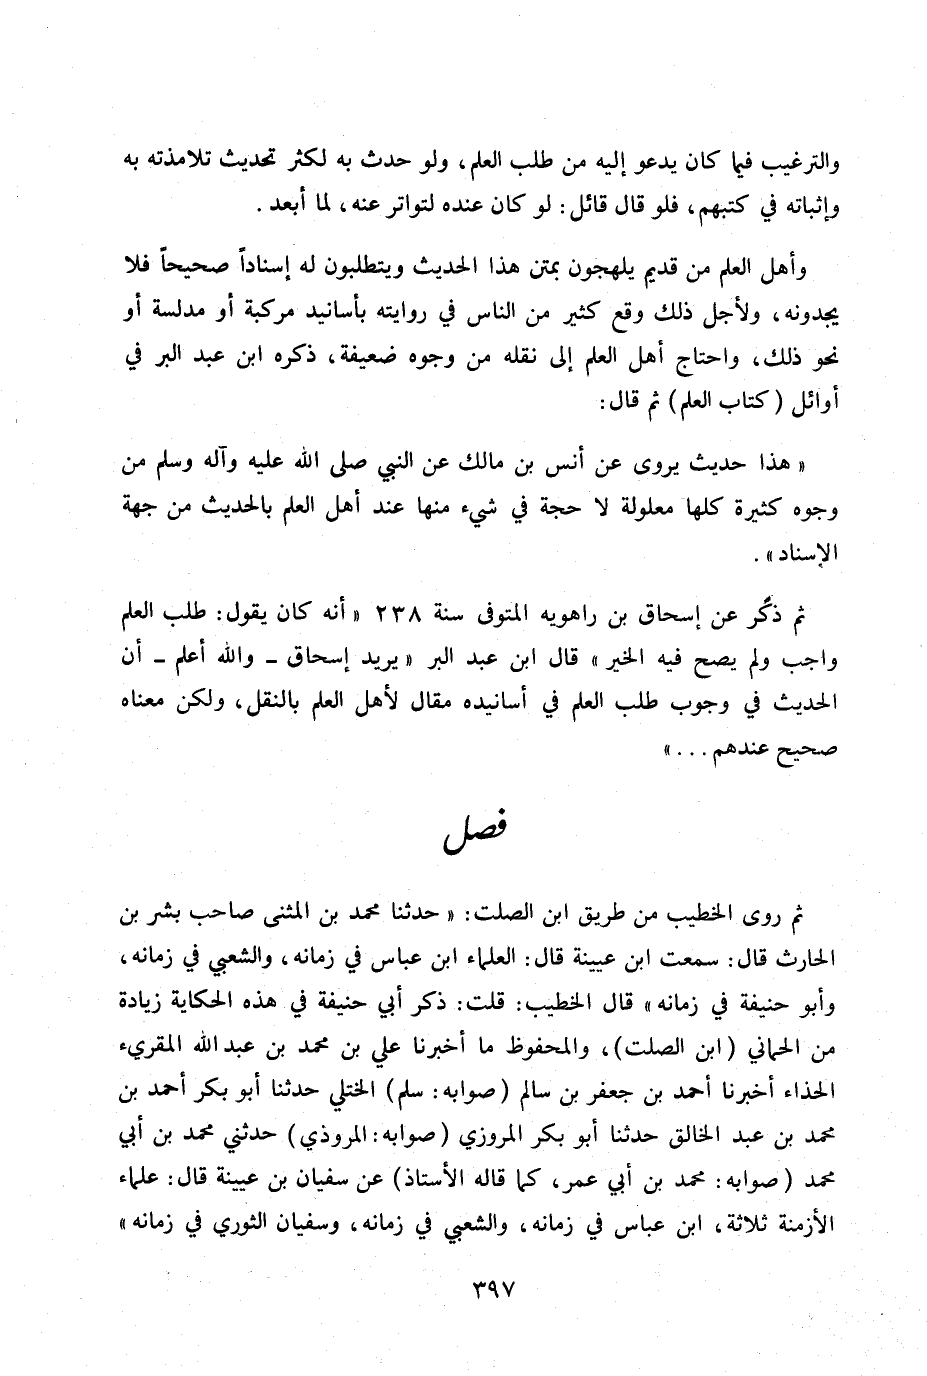 والترغيب فيما كان يدعو إليه من طلب العلم، ولو حدث به لكثر تحديث تلامذته به
وإثباته في كتبهم، فلو قال قائل: لو كان عنده لتواتر عنه، لما أبعد.
وأهل العلم من قديم يلهجون بمتن هذا الحديث ويتطلبون له إسناداً صحيحاً فلا
يجدونه، ولأجل ذلك وقع كثير من الناس في روايته بأسانيد مركبة أو مدلسة أو
نحو ذلك، واحتاج أهل العلم إلى نقله من وجوه ضعيفة، ذكره ابن عبد البر في
أوائل (كتاب العلم) ثم قال:
« هذا حديث يروى عن أنس بن مالك عن النبي صلى الله عليه وآله وسلم من
وجوه كثيرة كلها معلولة لا حجة في شيء منها عند أهل العلم بالحديث من جهة
الإسناد».
ثم ذكّر عن إسحاق بن راهويه المتوفى سنة ٢٣٨ « أنه كان يقول: طلب العلم
واجب ولم يصح فيه الخبر» قال ابن عبد البر « يريد إسحاق - والله أعلم - أن
الحديث في وجوب طلب العلم في أسانيده مقال لأهل العلم بالنقل، ولكن معناه
صحيح عندهم . . . »
فصل
ثم روى الخطيب من طريق ابن الصلت: « حدثنا محمد بن المثنى صاحب بشر بن
الحارث قال: سمعت ابن عيينة قال: العلماء ابن عباس في زمانه، والشعبي في زمانه،
وأبو حنيفة في زمانه» قال الخطيب: قلت: ذكر أبي حنيفة في هذه الحكاية زيادة
من الحماني (ابن الصلت)، والمحفوظ ما أخبرنا علي بن محمد بن عبدالله المقريء
الحذاء أخبرنا أحمد بن جعفر بن سالم (صوابه: سلم) الختلي حدثنا أبو بكر أحمد بن
محمد بن عبد الخالق حدثنا أبو بكر المروزي (صوابه: المروذي) حدثني محمد بن أبي
محمد (صوابه: محمد بن أبي عمر، كما قاله الأستاذ) عن سفيان بن عيينة قال: علماء
الأزمنة ثلاثة، ابن عباس في زمانه، والشعبي في زمانه، وسفيان الثوري في زمانه»
٣٩٧